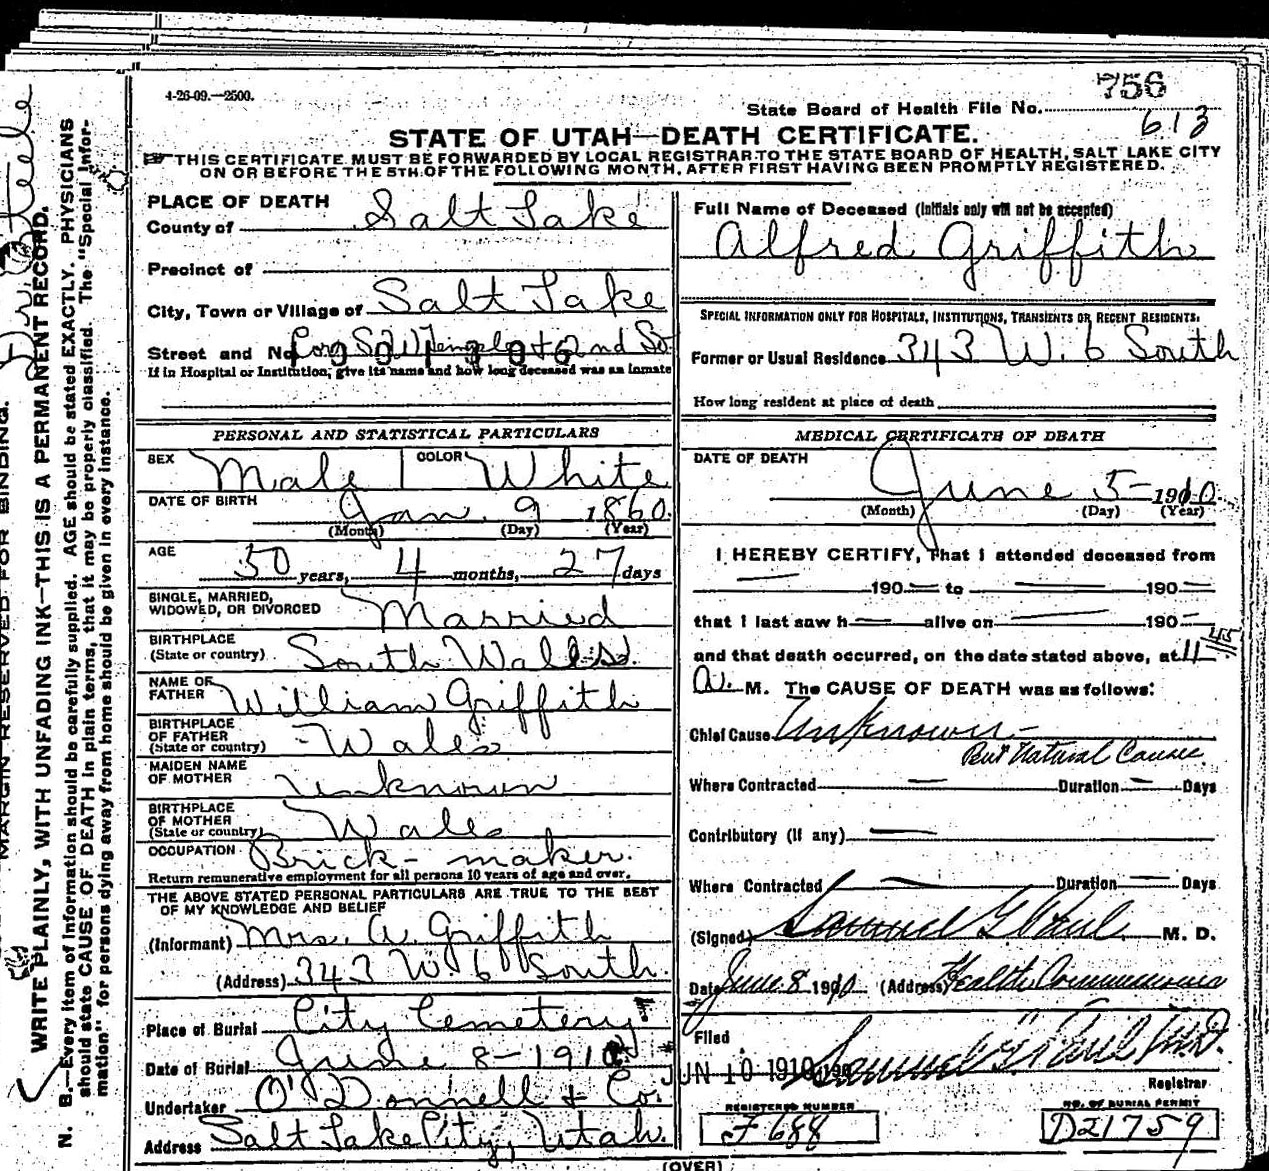 4-26-09.—2500.
756
State Board of Health File No.
613
STATE OF UTAH—DEATH CERTIFICATE.
THIS CERTIFICATE MUST BE FORWARDED BY LOCAL REGISTRAR TO THE STATE BOARD OF HEALTH, SALT LAKE CITY
ON OR BEFORE THE 5TH OF THE FOLLOWING MONTH, AFTER FIRST HAVING BEEN PROMPTLY REGISTERED.
PLACE OF DEATH
County of Salt Lake
Precinct of
City, Town or Village of Salt Lake
Street and No. Cor S W Temple + 2nd So
0 0 1 3 0 6
If in Hospital or Institution, give its name and how long deceased was an inmate
PERSONAL AND STATISTICAL PARTICULARS
SEX Male COLOR White
DATE OF BIRTH Jan. 9 1860.
(Month) (Day) (Year)
AGE 50 years, 4 months, 27 days
SINGLE, MARRIED,
WIDOWED, OR DIVORCED Married
BIRTHPLACE
(State or country) South Wales.
NAME OF
FATHER William Griffith
BIRTHPLACE
OF FATHER
(State or country) Wales
MAIDEN NAME
OF MOTHER Unknown
BIRTHPLACE
OF MOTHER
(State or country) Wales
OCCUPATION Brick-maker.
Return remunerative employment for all persons 10 years of age and over.
THE ABOVE STATED PERSONAL PARTICULARS ARE TRUE TO THE BEST
OF MY KNOWLEDGE AND BELIEF
(Informant) Mrs. A. Griffith
(Address) 343 W 6 South.
Place of Burial City Cemetery
Date of Burial June 8-1910
Undertaker O'Donnell + Co.
Address Salt Lake City, Utah.
Full Name of Deceased (Initials only will not be accepted)
Alfred Griffith
SPECIAL INFORMATION ONLY FOR HOSPITALS, INSTITUTIONS, TRANSIENTS OR RECENT RESIDENTS.
Former or Usual Residence 343 W. 6 South
How long resident at place of death
MEDICAL CERTIFICATE OF DEATH
DATE OF DEATH
June 5- 1910.
(Month) (Day) (Year)
I HEREBY CERTIFY, That I attended deceased from
190 to 190
that I last saw h alive on 190
and that death occurred, on the date stated above, at 11 45
A. M. The CAUSE OF DEATH was as follows:
Chief Cause Unknown-
But Natural Causes.
Where Contracted Duration Days
Contributory (if any)
Where Contracted Duration Days
(Signed) Samuel G Paul M. D.
Date June 8 1910 (Address) Health Commissioner
Filed
JUN 10 1910 190 Samuel G Paul M.D.
Registrar
REGISTERED NUMBER
F 688
NO. OF BURIAL PERMIT
D21759
(OVER)
MARGIN RESERVED FOR BINDING.
WRITE PLAINLY, WITH UNFADING INK—THIS IS A PERMANENT RECORD.
N. B.—Every item of information should be carefully supplied. AGE should be stated EXACTLY. PHYSICIANS
should state CAUSE OF DEATH in plain terms, that it may be properly classified. The "Special Infor-
mation" for persons dying away from home should be given in every instance.